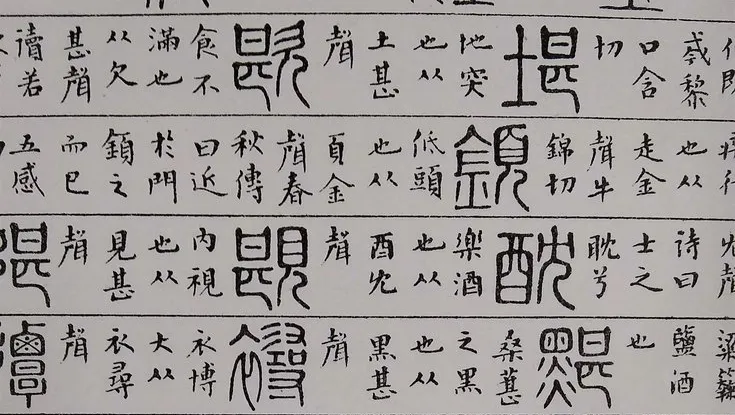 黎
口含
切
堪
地突
也从
土甚
聲
歁
食不
滿也
从欠
甚聲
讀若
疾行
也从
走金
聲牛
錦切
顉
低頭
也从
頁金
聲春
秋傳
曰
於門
顉之
而已
五感
冘聲
詩曰
士之
耽兮
酖
樂酒
也从
酉冘
聲
內視
也从
見甚
聲
鹽酒
也
黮
桑葚
之黑
也从
黑甚
聲
衣博
大从
衣尋
聲